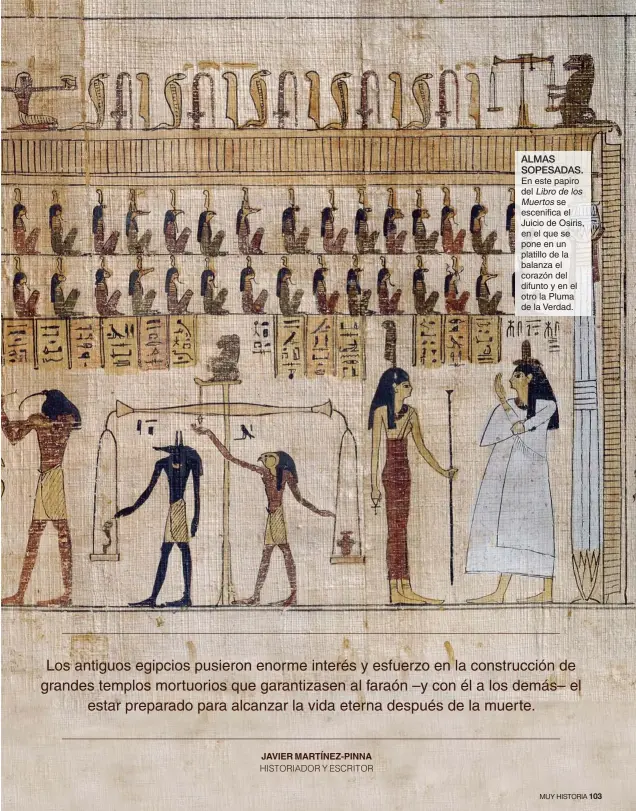 ALMAS
SOPESADAS.
En este papiro
del Libro de los
Muertos se
escenifica el
Juicio de Osiris,
en el que se
pone en un
platillo de la
balanza el
corazón del
difunto y en el
otro la Pluma
de la Verdad.
Los antiguos egipcios pusieron enorme interés y esfuerzo en la construcción de
grandes templos mortuorios que garantizasen al faraón –y con él a los demás– el
estar preparado para alcanzar la vida eterna después de la muerte.
JAVIER MARTÍNEZ-PINNA
HISTORIADOR Y ESCRITOR
MUY HISTORIA 103